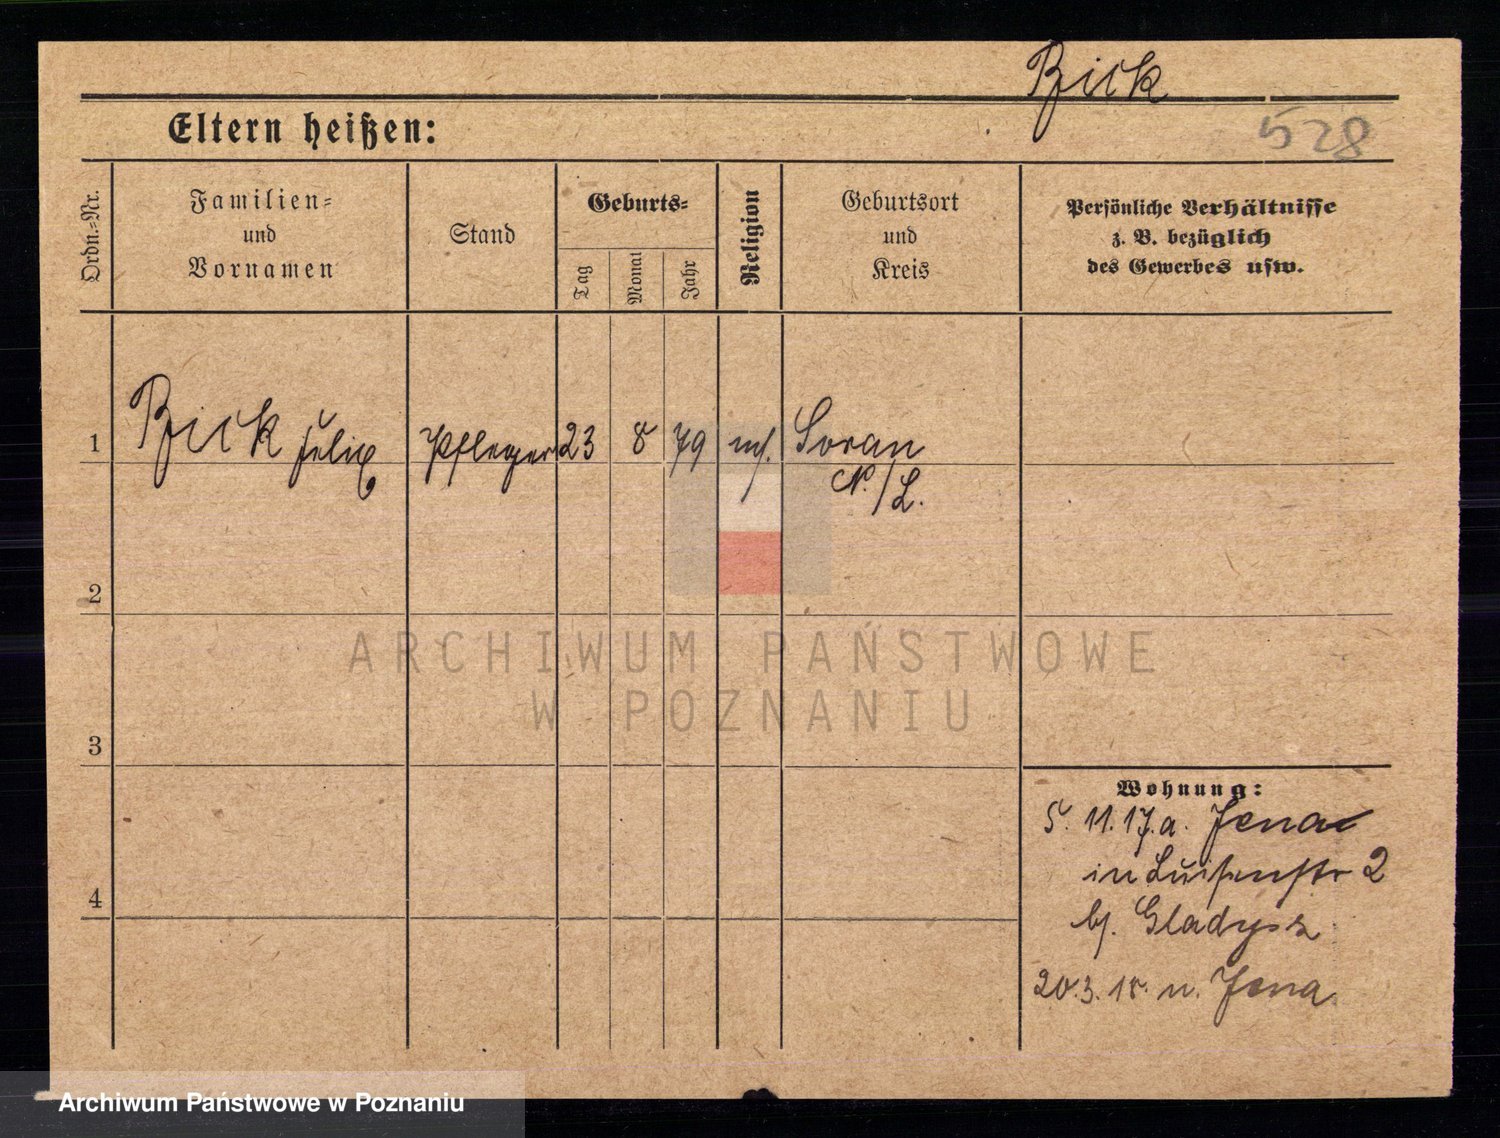 Bick
528
Eltern heißen:
Ordn.=Nr.
Familien=
und
Vornamen
Stand
Geburts=
Tag
Monat
Jahr
Religion
Geburtsort
und
Kreis
Persönliche Verhältnisse
z. B. bezüglich
des Gewerbes usw.
1
Bick Felix
Pfleger
23
8
79
Soran
N./L.
2
3
4
Wohnung:
5. 11. 17. a. Jena
in Luisenstr 2
bj. Gladysz
20.3.18. n. Jena
ARCHIWUM PAŃSTWOWE
W POZNANIU
Archiwum Państwowe w Poznaniu